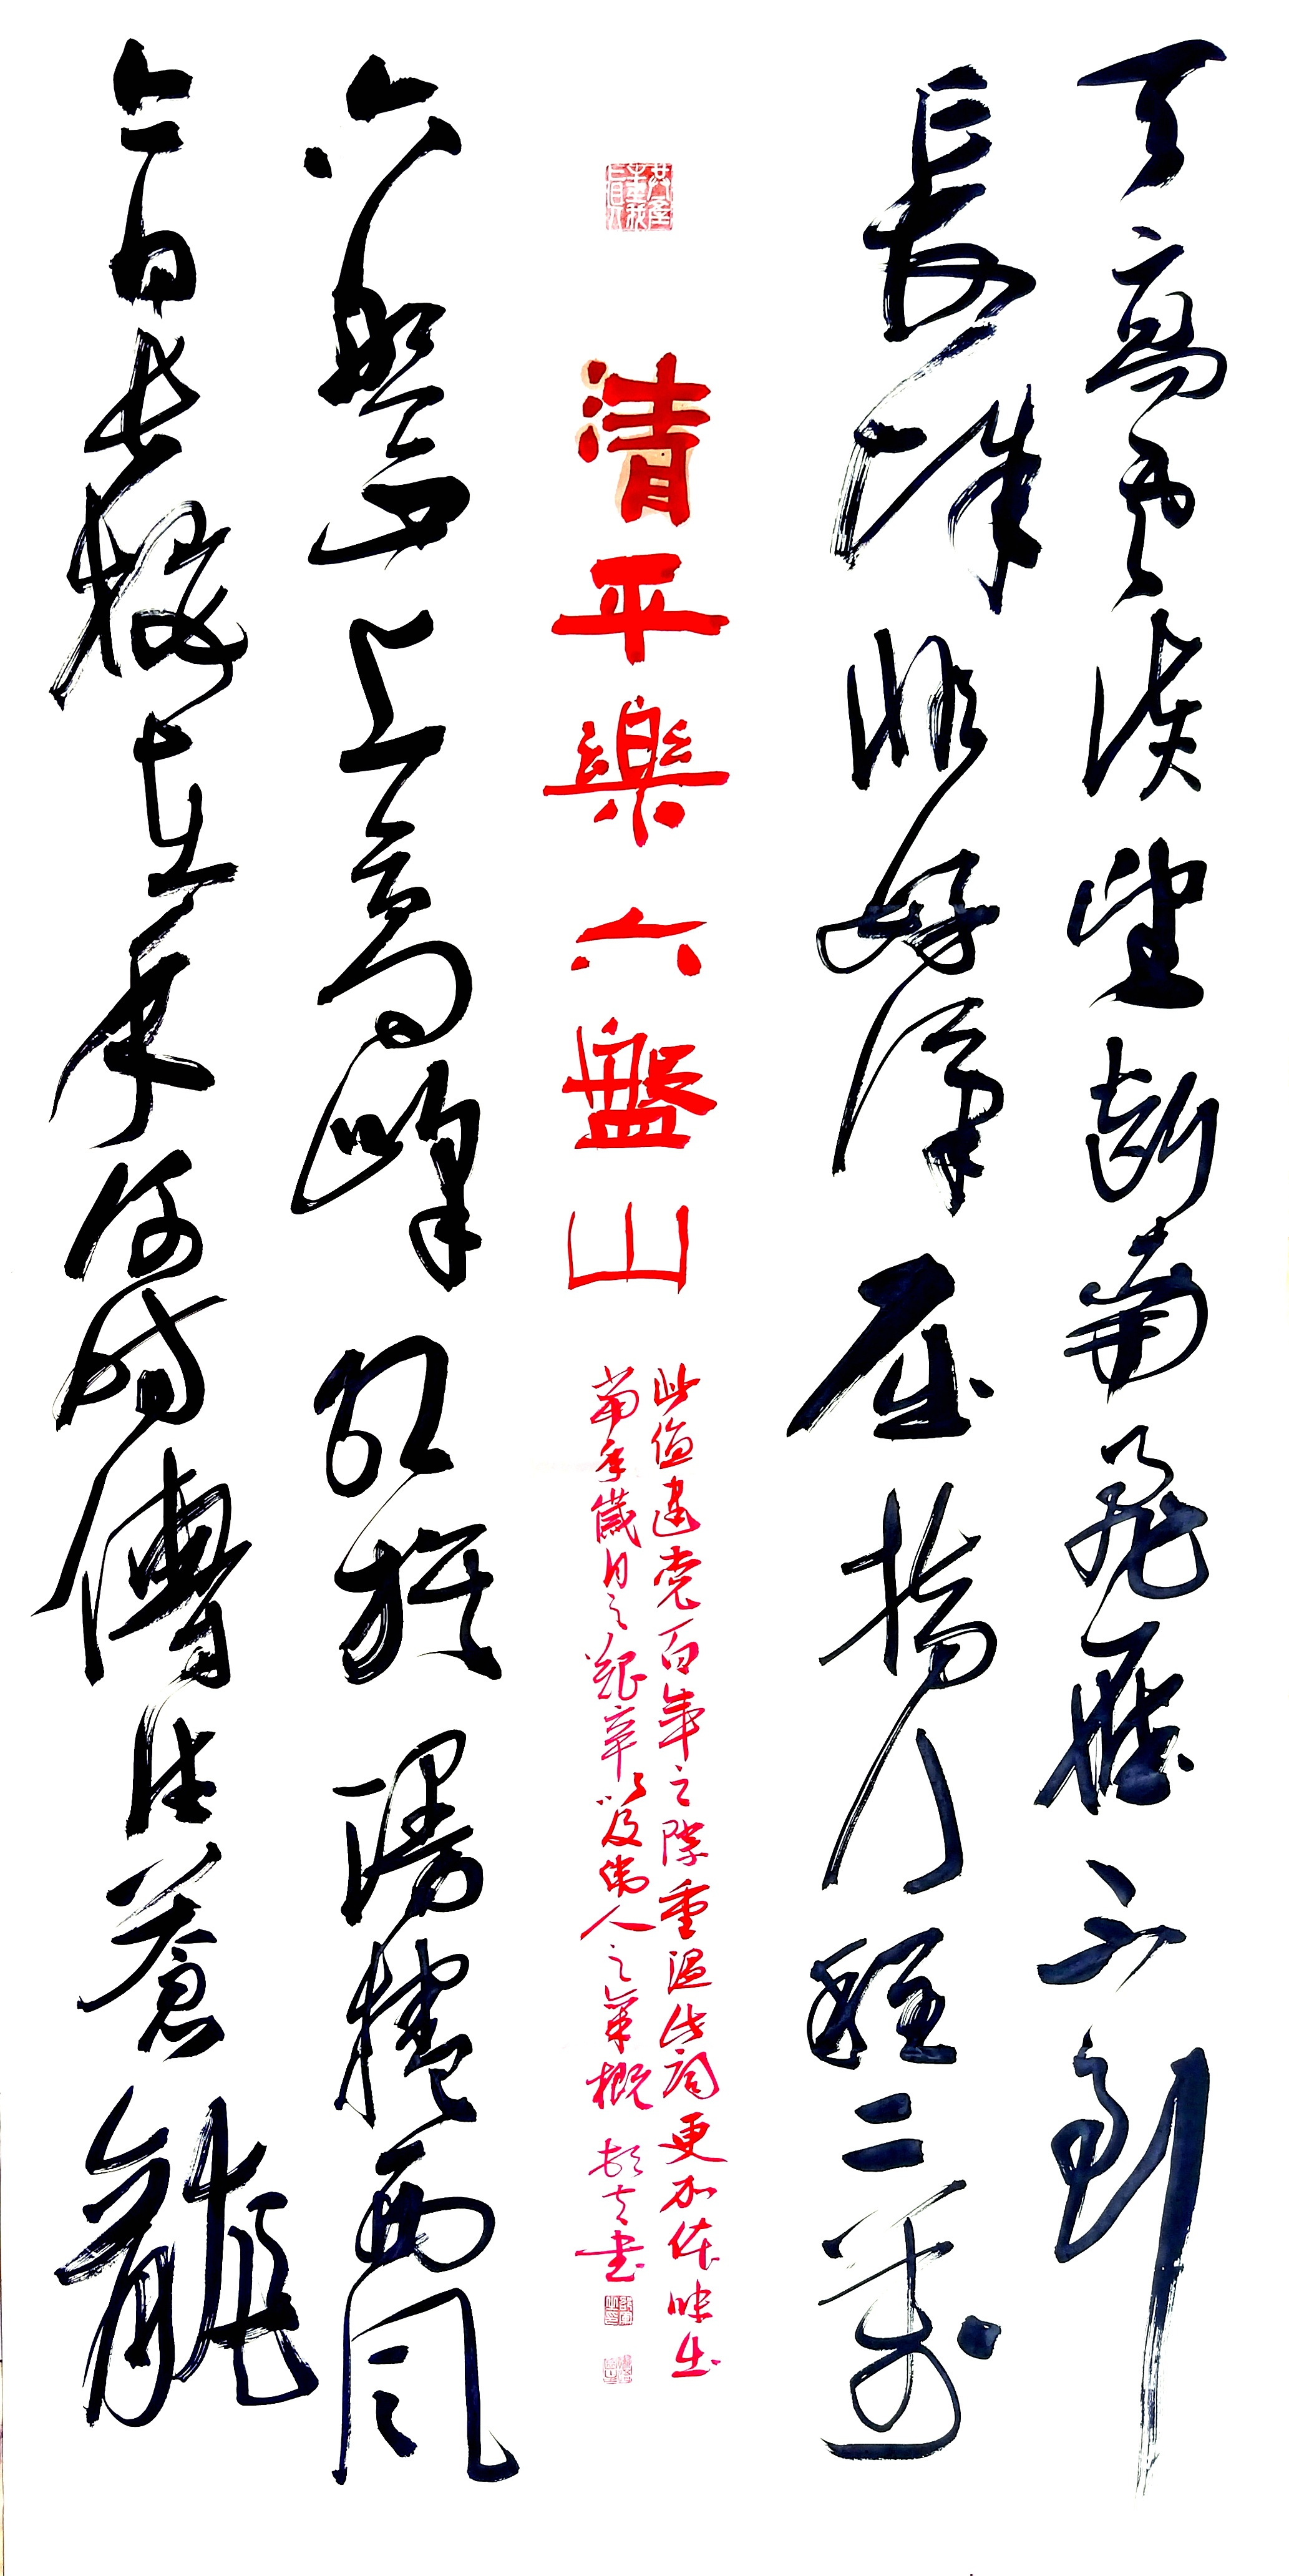 天高雲淡望斷南飛雁不到
長城非好漢屈指行程二萬
清平樂六盤山
此值建党百年之際重溫此詞更加体味出
當年歲月之艱辛以及偉人之氣概 書
六盤山上高峰紅旗漫捲西風
今日長纓在手何時縛住蒼龍